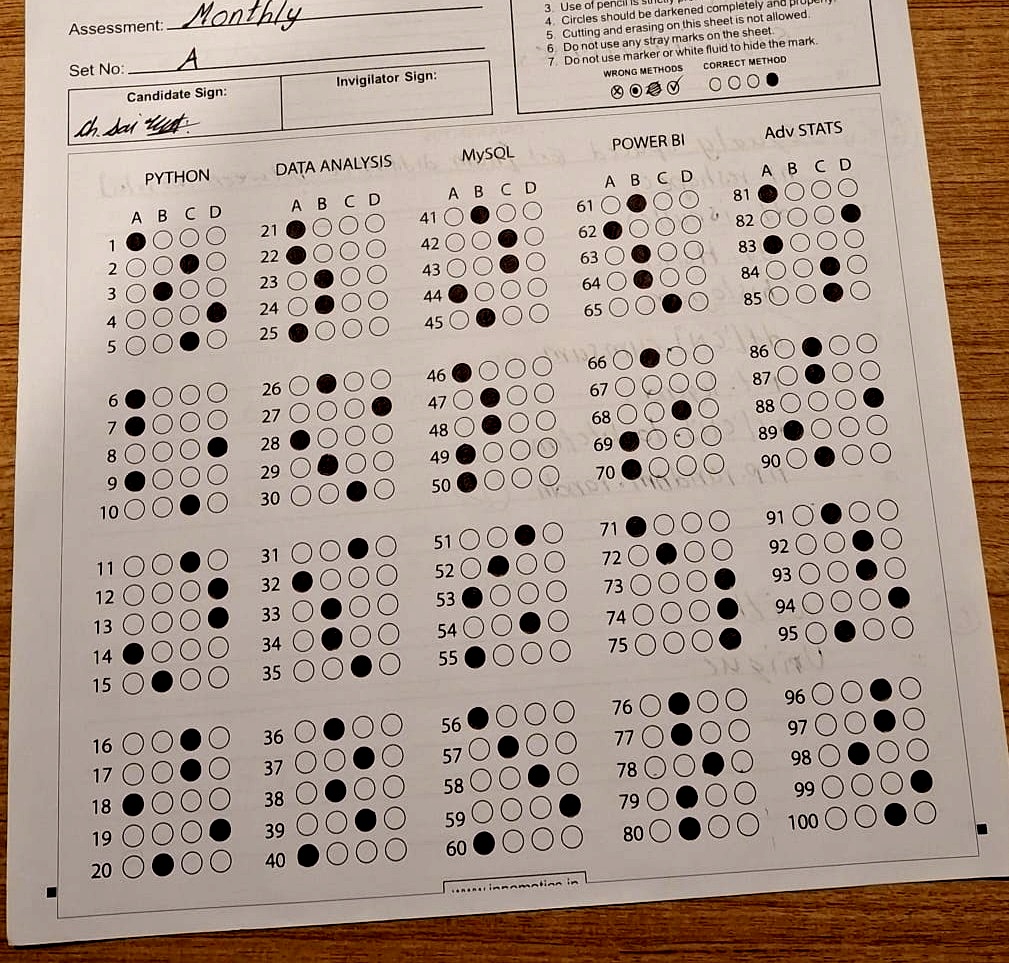 Assessment: Monthly
Set No: A
Candidate Sign:
Invigilator Sign:
Ch. Sai
3. Use of pencil is strictly
4. Circles should be darkened completely and properly.
5. Cutting and erasing on this sheet is not allowed.
6. Do not use any stray marks on the sheet.
7. Do not use marker or white fluid to hide the mark.
WRONG METHODS CORRECT METHOD
PYTHON
A B C D
1
2
3
4
5
6
7
8
9
10
11
12
13
14
15
16
17
18
19
20
DATA ANALYSIS
A B C D
21
22
23
24
25
26
27
28
29
30
31
32
33
34
35
36
37
38
39
40
MySQL
A B C D
41
42
43
44
45
46
47
48
49
50
51
52
53
54
55
56
57
58
59
60
POWER BI
A B C D
61
62
63
64
65
66
67
68
69
70
71
72
73
74
75
76
77
78
79
80
Adv STATS
A B C D
81
82
83
84
85
86
87
88
89
90
91
92
93
94
95
96
97
98
99
100